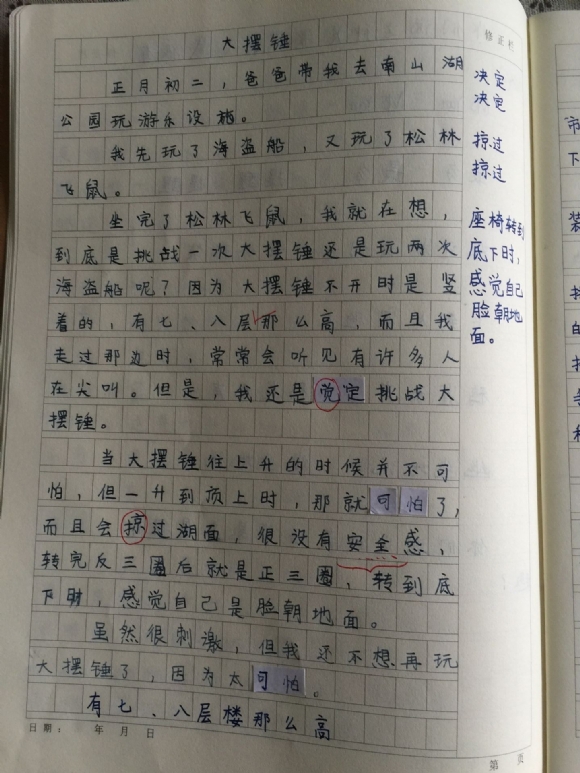 大摆锤
修正栏
正月初二，爸爸带我去南山湖
公园玩游乐设施。
我先玩了海盗船，又玩了松林
飞鼠。
坐完了松林飞鼠，我就在想，
到底是挑战一次大摆锤还是玩两次
海盗船呢？因为大摆锤不开时是竖
着的，有七、八层那么高，而且我
走过那边时，常常会听见有许多人
在尖叫。但是，我还是觉定挑战大
摆锤。
当大摆锤往上升的时候并不可
怕，但一升到顶上时，那就可怕了，
而且会掠过湖面，很没有安全感，
转完反三圈后就是正三圈，转到底
下时，感觉自己是脸朝地面。
虽然很刺激，但我还不想再玩
大摆锤了，因为太可怕。
有七、八层楼那么高
日期： 年 月 日
第 页
决定
决定
掠过
掠过
座椅转到
底下时，
感觉自己
脸朝地
面。